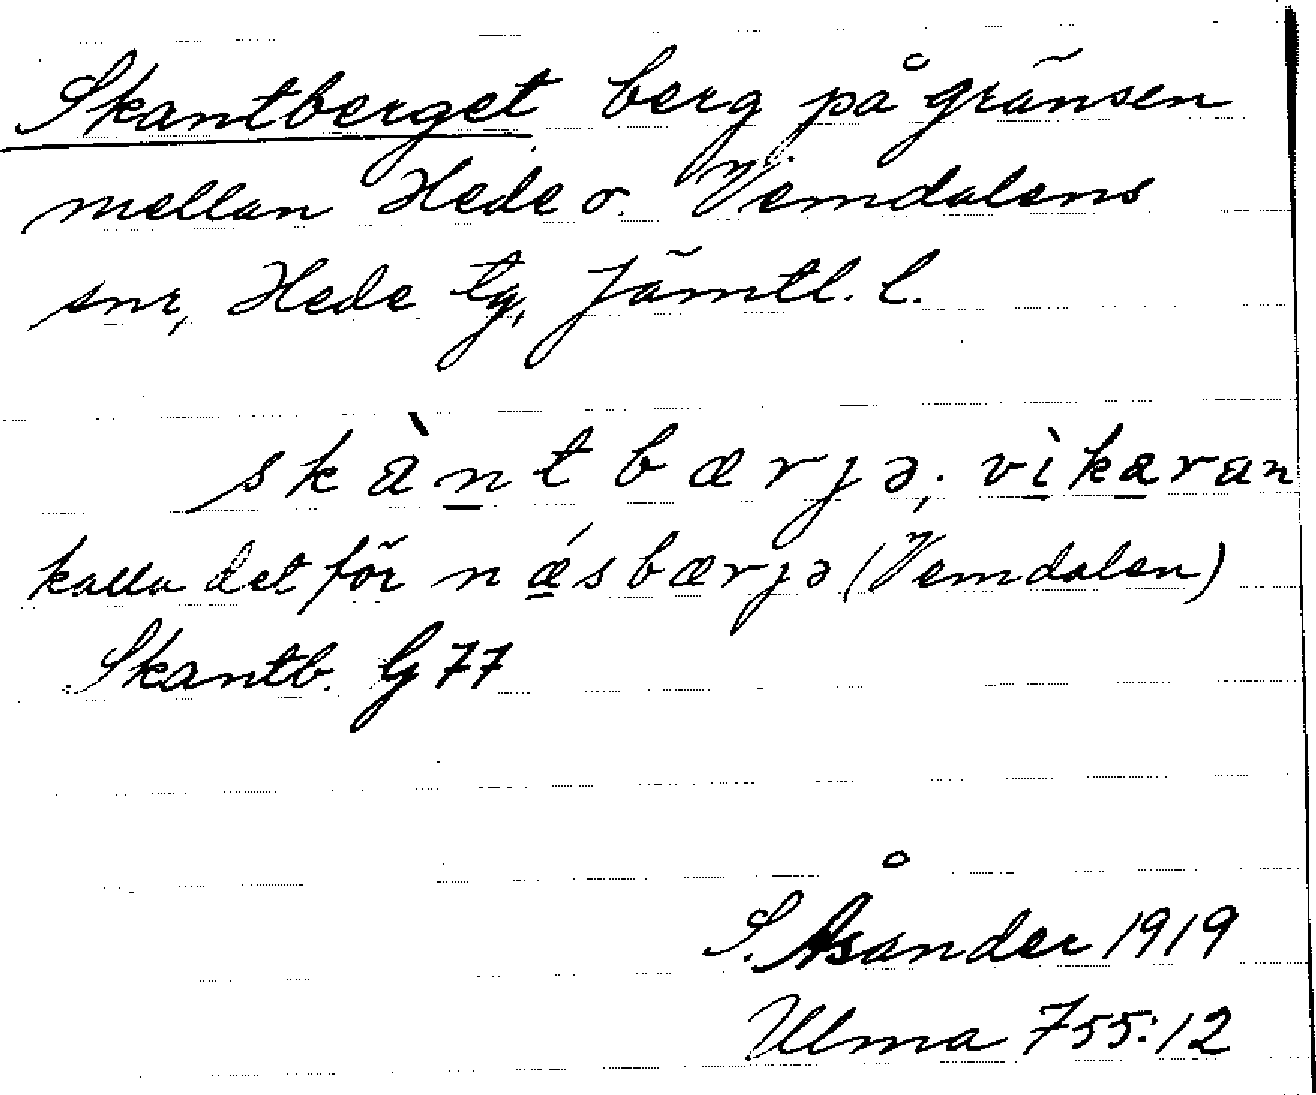 Skantberget berg på gränsen
mellan Hede o. Vemdalens
snr, Hede tg, Jämtl. l.
skàntbærjə; vìkaran
kalla det för nǽsbærjə (Vemdalen)
Skantb. G 77
S. Åsander 1919
Ulma 755:12